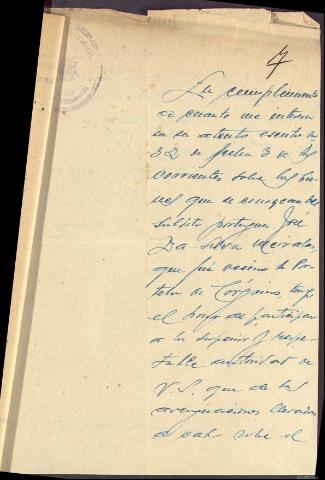 7
En cumplimiento
a cuanto me interesa
en su atento escrito nº
32 de fecha 3 de los
corrientes sobre los bie-
nes que se
subdito portugues José
Da Silva
que fué vecino de Por-
tela de tengo
el honor de participar
a la superior y respe-
table autoridad de
V.S. que de las
averiguaciones llevadas
a cabo sobre el